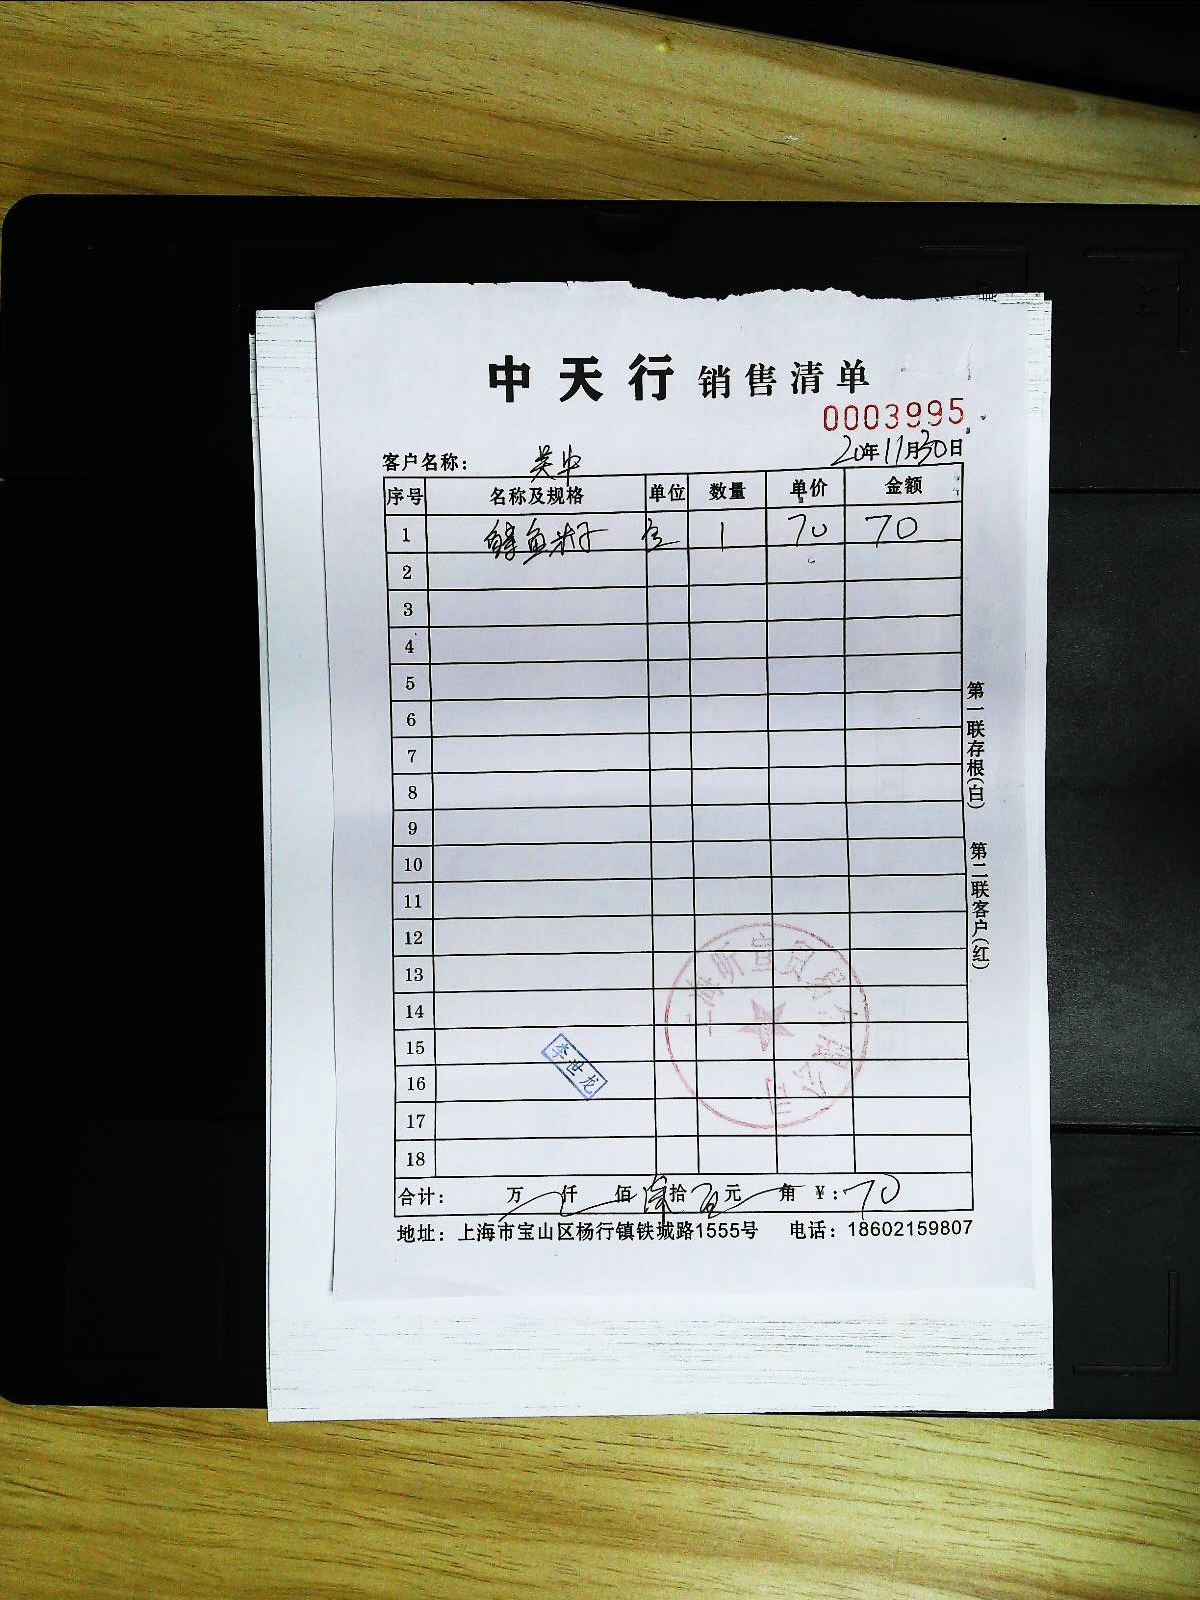 中天行 销售清单
0003995
客户名称: 吴中 20年11月30日
序号 名称及规格 单位 数量 单价 金额
1 鱼籽 1 70 70
2
3
4
5
6
7
8
9
10
11
12
13
14
15
16
17
18
李世龙
上海昕宣贸易有限公司
合计: 万 仟 佰 拾 元 角 ¥: 70
地址: 上海市宝山区杨行镇铁城路1555号 电话: 18602159807
第一联存根(白)
第二联客户(红)